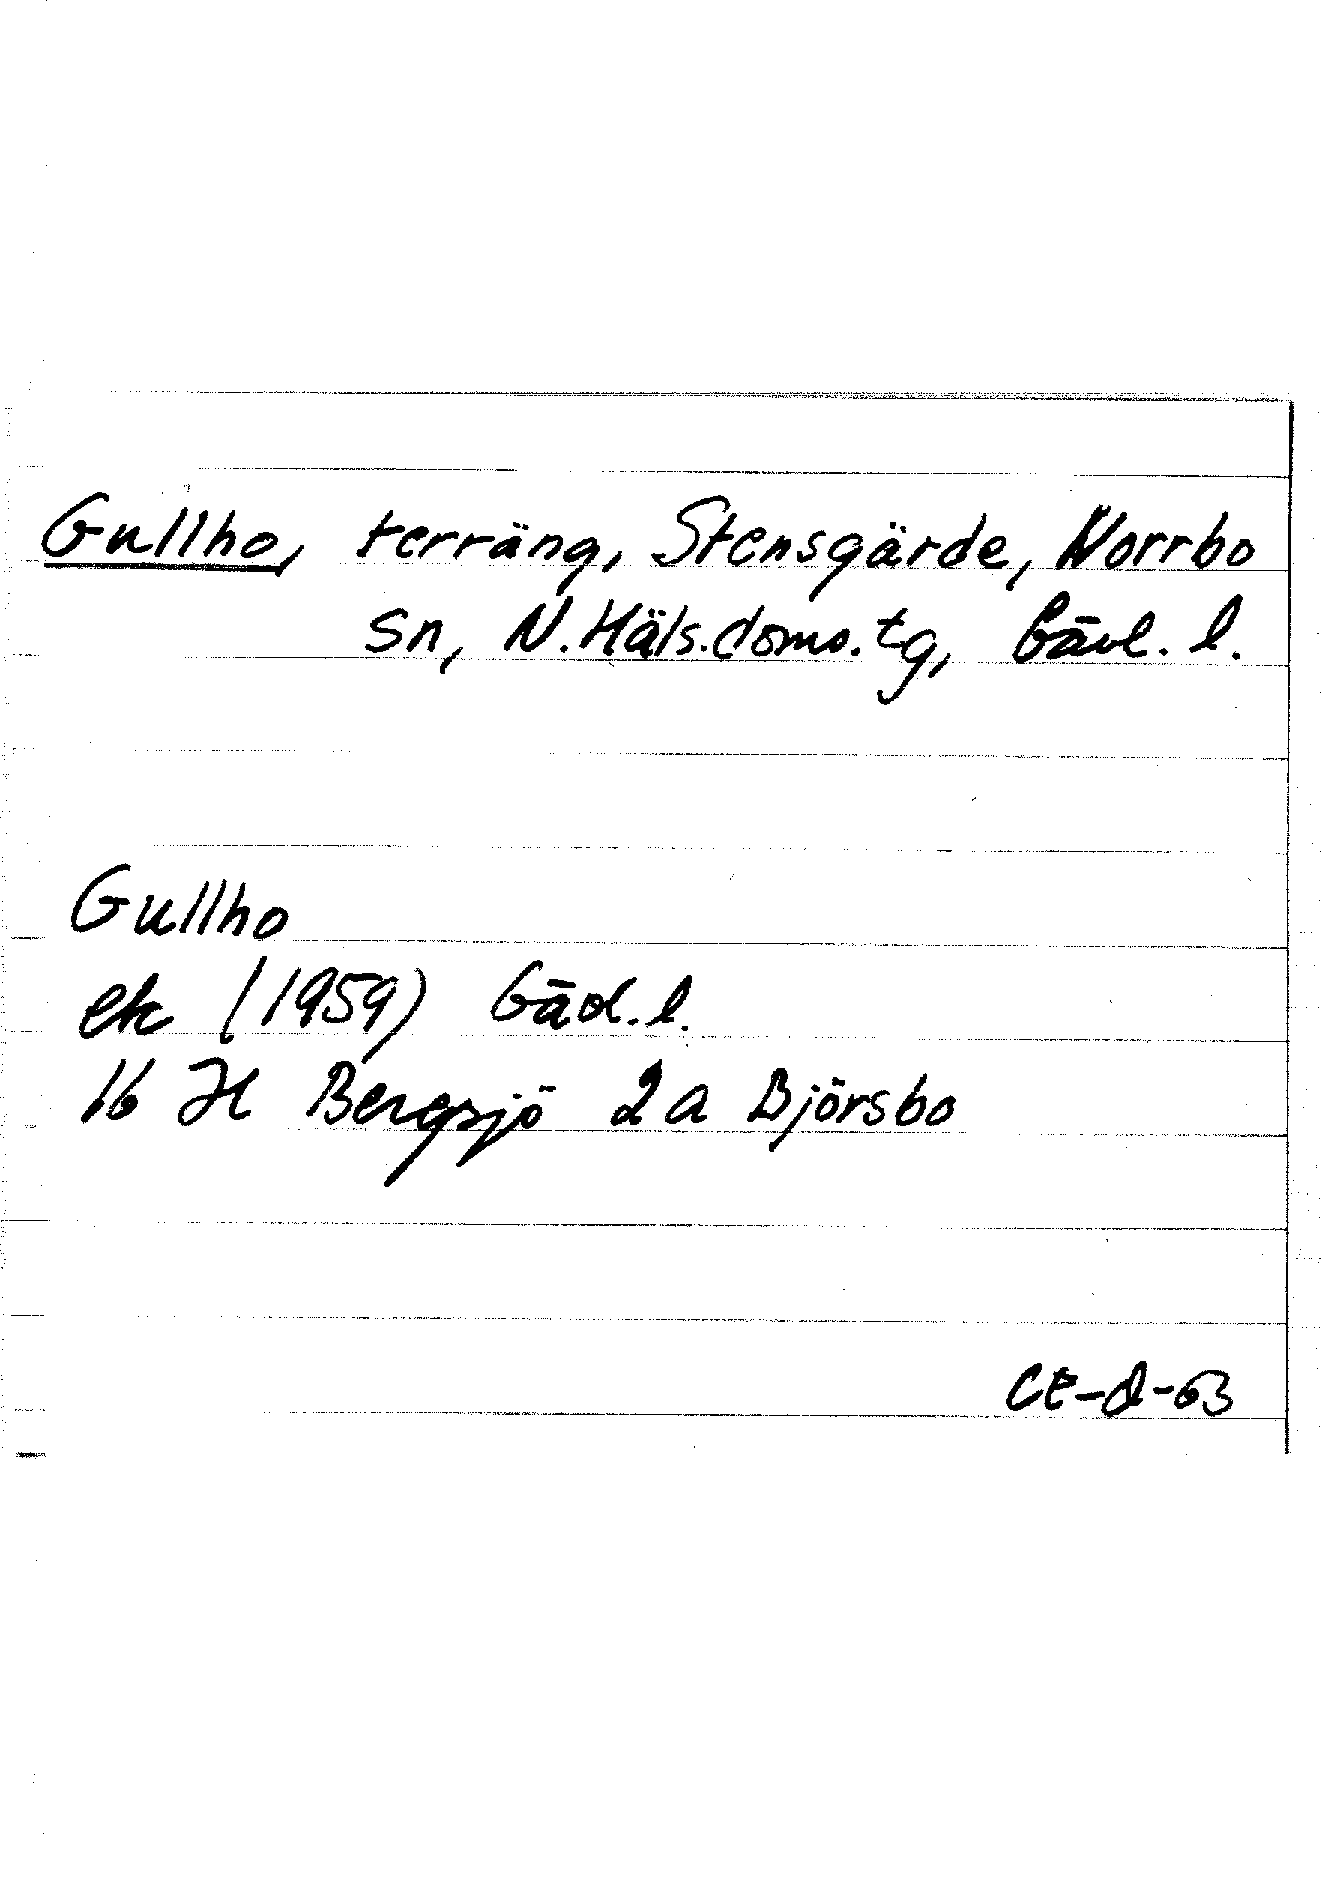 Gullho, terräng, Stensgärde, Norrbo
sn, N. Häls. doms. tg, Gävl. l.
Gullho
ek (1959) Gävl. l.
16 H Bergsjö 2a Björsbo